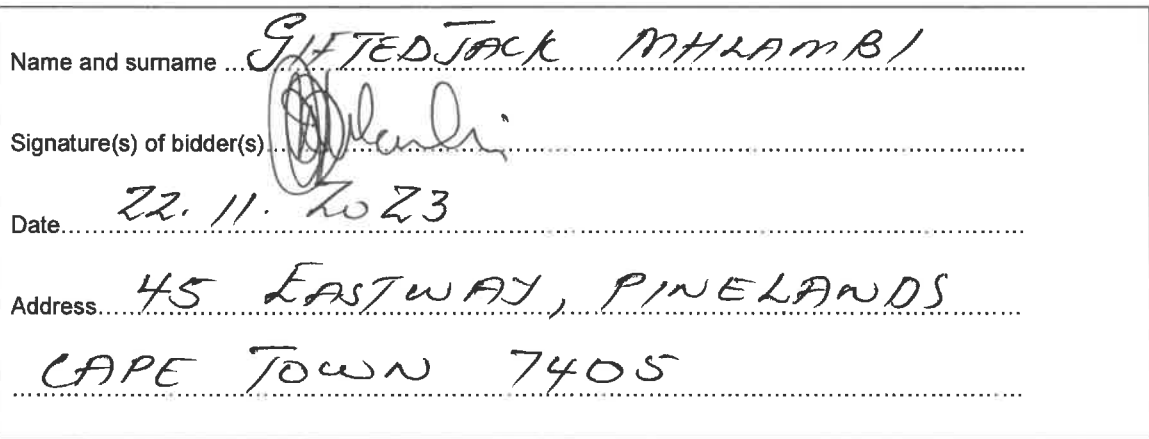 Name and surname ... GIFTEDJACK MHLAMBI
Signature(s) of bidder(s)
Date... 22.11.2023
Address... 45 EASTWAY, PINELANDS
CAPE TOWN 7405